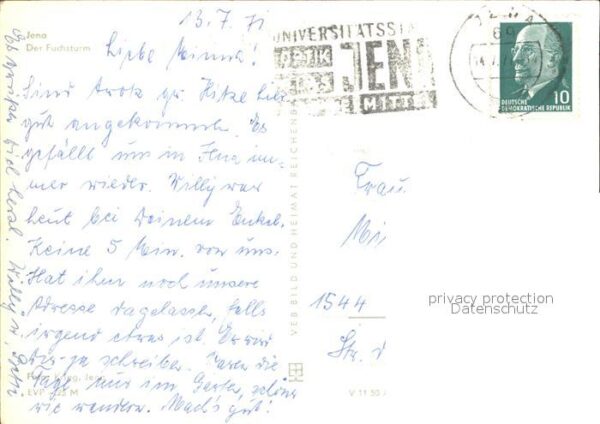 Jena
Der Fuchsturm
13.7.71
Liebe Minna!
Sind trotz gr. Hitze
gut angekommen. Es
gefällt uns in Jena im-
mer wieder. Willy war
heut bei Deinem Enkel.
Keine 5 Min. von uns.
Hat ihm noch unsere
Adresse dagelassen, falls
irgend etwas ist. Er wird
Dir ja schreiben. Waren die
Tage nur im Garten, schöner
wie wandern. Mach's gut!
viel herzl.
Willy u.
EVP
VEB BILD UND HEIMAT REICHENB
V 11 50
UNIVERSITÄTSST
JEN
MITT
JENA
69
DEUTSCHE
DEMOKRATISCHE REPUBLIK
10
Frau
Mi
1544
Str. d
privacy protection
Datenschutz